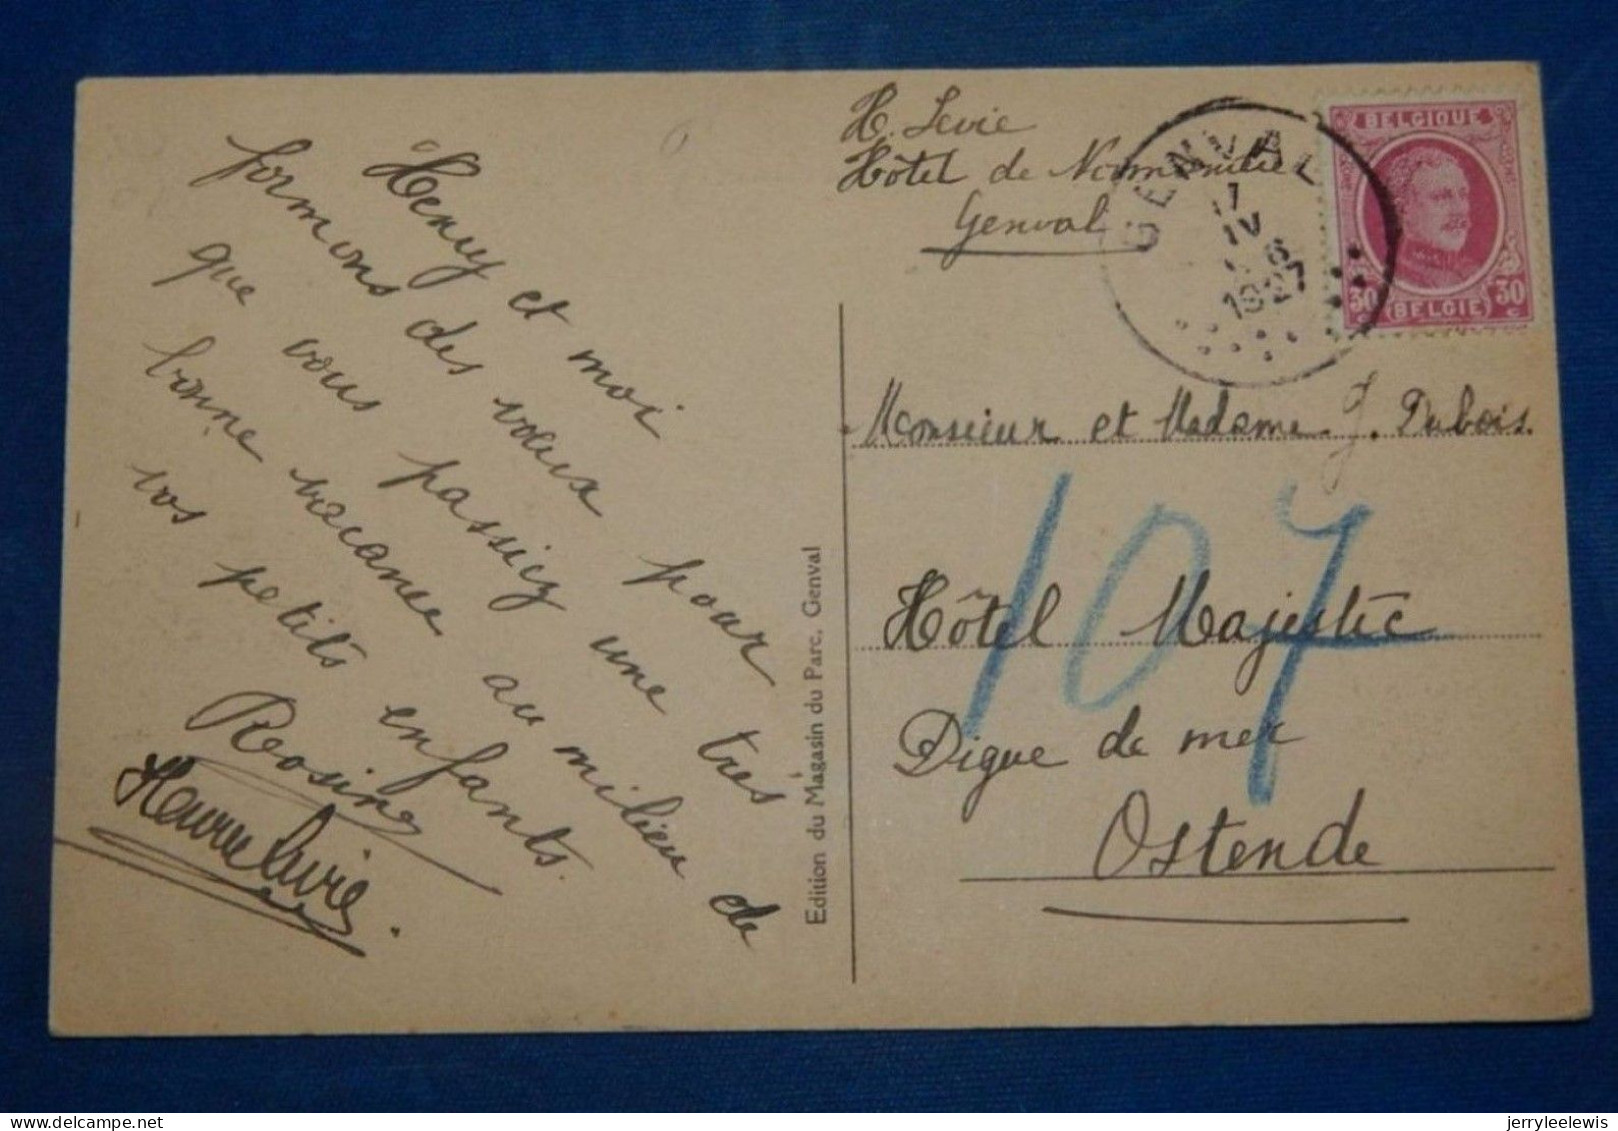 Henry et moi
formons des voeux pour
que vous passiez une très
bonne vacance au milieu de
vos petits enfants.
Rosine
Edition du Magasin du Parc, Genval
H. Levie
Hôtel de Normandie
Genval
GENVAL
IV
1927
BELGIQUE
30 30
BELGIE
Monsieur et Madame J. Dubois.
107
Hôtel Majestic
Digue de mer
Ostende
jerryleelewis